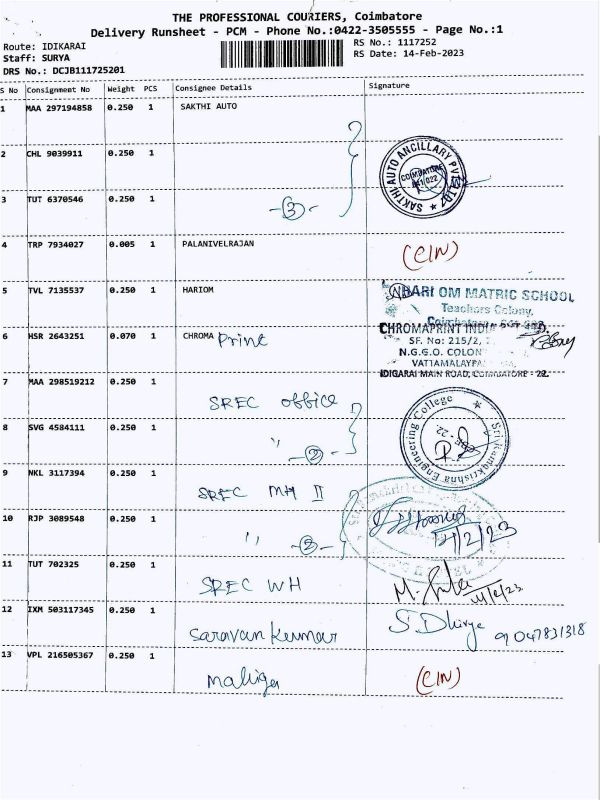 THE PROFESSIONAL COURIERS, Coimbatore
Delivery Runsheet - PCM - Phone No.:0422-3505555 - Page No.:1
Route: IDIKARAI
RS No.: 1117252
Staff: SURYA
RS Date: 14-Feb-2023
DRS No.: DCJB111725201
S No Consignment No Weight PCS Consignee Details Signature
1 MAA 297194858 0.250 1 SAKTHI AUTO
2 CHL 9039911 0.250 1
SAKTHI AUTO ANCILLARY PVT
COIMBATORE
641 022
3 TUT 6370546 0.250 1
-3-
4 TRP 7934027 0.005 1 PALANIVELRAJAN
(CIN)
5 TVL 7135537 0.250 1 HARIOM
HARI OM MATRIC SCHOOL
Teachers Colony,
6 HSR 2643251 0.070 1 CHROMA Print
CHROMAPRINT INDIA
SF. No: 215/2,
N.G.G.O. COLON
IDIGARAI MAIN ROAD, COIMBATORE - 22.
7 MAA 298519212 0.250 1
SREC office
8 SVG 4584111 0.250 1
" -2-
Sri Ramakrishna Engineering College
CBE - 22
9 NKL 3117394 0.250 1
SREC MH II
10 RJP 3089548 0.250 1
" -2-
11 TUT 702325 0.250 1
SREC WH
12 IXM 503117345 0.250 1
Saravan Kumar
S. Dhivya
9047831318
13 VPL 216505367 0.250 1
(CIN)